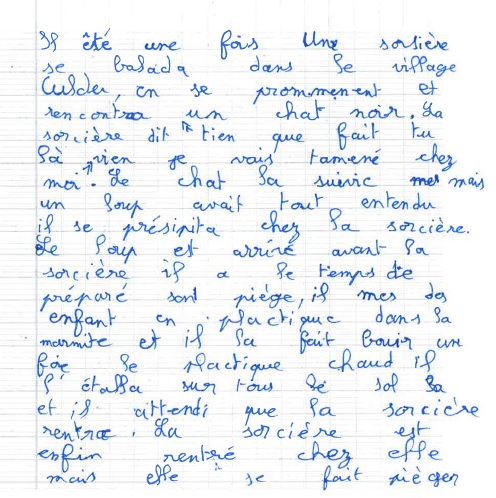 Il été une fois Une sorsière
se balada dans le village
Culdeu, en se prommenent et
rencontra un chat noir. La
sorcière dit " tien que fait tu
là vien je vais tamené chez
moi". Le chat la suivie mes mais
un loup avait tout entendu
il se présipita chez la sorcière.
Le loup est arrivé avant la
sorcière il a le temps de
préparé sont piège, il mes des
enfant en plactique dans la
marmite et il la fait bouir un
foie le plactique chaud il
l'étalla sur tous le sol la
et il attendi que la sorcière
rentrae. La sorcière est
enfin rentré chez elle
mais elle se fait pièger